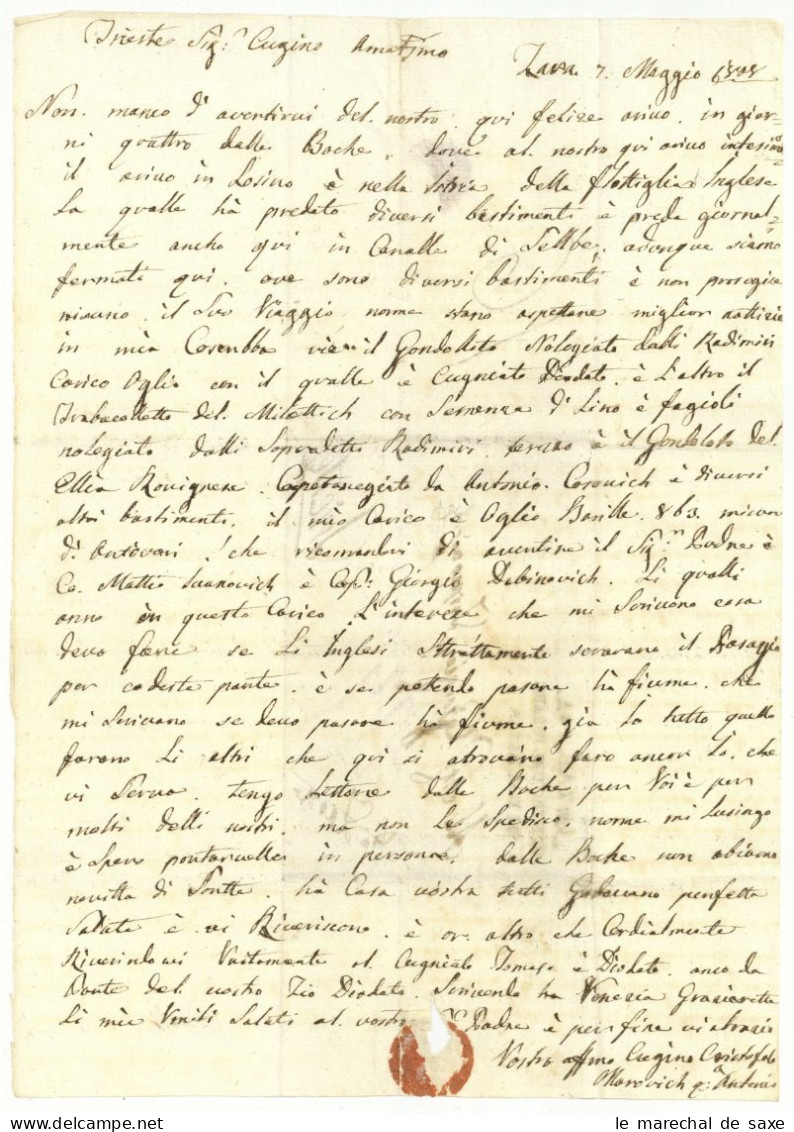 Trieste Sig.r Cugino Amatissimo
Zara 7. Maggio 1808
Non manco d'avertirvi del nostro qui felize arivo in gior-
ni quattro dalle Boche, dove al nostro qui arivo intesimo
il arivo in Losino è nella Istria della flottiglia Inglese
la qualle hà predato diversi bastimenti è preda giornal-
mente anche qui in Canalle di Sellbe, adunque siamo
fermati qui, ove sono diversi bastimenti è non prosegie
nisuno il suo Viaggio, nome stano aspettane miglior nottizie
in mia il Gondolleto Nolegiato dalli Radimiri
Carico Oglio con il qualle è Cugniato Diodato, è L'altro il
Trabacolletto del Milettich con Semenza d'Lino è fagioli
nolegiato dalli Sopradetti Radimiri, è il Gondoloto del
Ellia Rovignese Capetanegiato da Antonio è diversi
altri bastimenti, il mio Carico è Oglio Barille 863 misura
di Antivari, che ricomandovi di avertire il Sig.r Padre è
Co. Matteo Ivanovich è Cap.n Giorgio Dabinovich, Li qualli
anno in questo Carico L'interese che mi Scrivono cosa
devo fare se Li Inglesi Strettamente serarano il Pasagio
per codeste parte, è se pottendo pasare hà fiume, che
mi Scrivano se devo pasare hà fiume, già La tutto quello
farano Li altri che qui si atrovano faro ancor Io, che
vi Serva, tengo Lettere dalle Boche per Voi è per
molti delli nostri, ma non Le Spedisco, nome mi Lusingo
è Spero portarvelle in persona, dalle Boche non abiamo
novitta di Sortte, hà Casa vostra tutti Godevano perfetta
Salute è vi Riveriscono, è or altro che Cordialmente
Riverindovi Unitamente al Cugniato Tomaso è Diodato, anco da
Parte del nostro Zio Diodato, Scrivendo ha Venezia Graziarete
Li mie Umili Saluti al vostro Padre è per fine vi abracio
Vostro affmo Cugino Cristofolo
Marovich q.m Antonio
le marechal de saxe